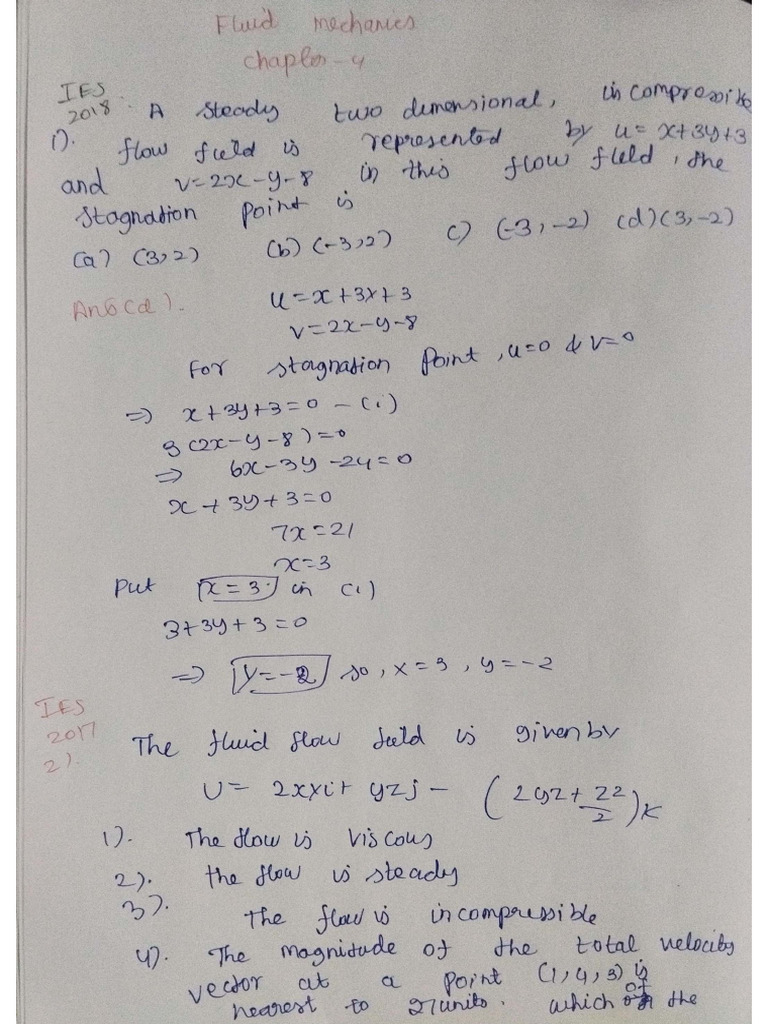 Fluid mechanics
chapter-4
IES
2018. A steady two dimensional, incompressible
1). flow field is represented by u=x+3y+3
and v=2x-y-8 in this flow field, the
stagnation point is
(a) (3,2) (b) (-3,2) c) (-3,-2) (d)(3,-2)
Ans(d). u=x+3x+3
v=2x-y-8
For stagnation point, u=0 & v=0
⇒ x+3y+3=0 -(i)
3(2x-y-8)=0
⇒ 6x-3y-24=0
x+3y+3=0
7x=21
x=3
Put x=3 in (i)
3+3y+3=0
⇒ y=-2 so, x=3, y=-2
IES
2017
2). The fluid flow field is given by
U= 2xxi+ yzj- (2yz+ z2/2)k
1). The flow is viscous
2). the flow is steady
3). The flow is incompressible
4). The magnitude of the total velocity
vector at a point (1,4,3) is
nearest to 27units. which of the